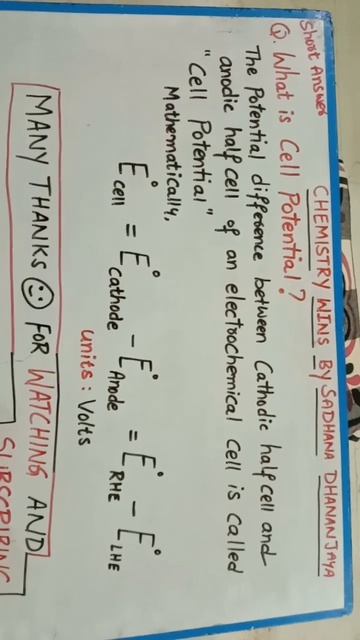 CHEMISTRY WINS BY SADHANA DHANANJAYA
Short Answer
Q. What is Cell Potential?
The Potential difference between Cathodic half cell and
anodic half cell of an electrochemical cell is called
"Cell Potential"
Mathematically,
E°cell = E°Cathode - E°Anode = E°RHE - E°LHE
units: Volts
MANY THANKS ☺ FOR WATCHING AND
SUBSCRIBING